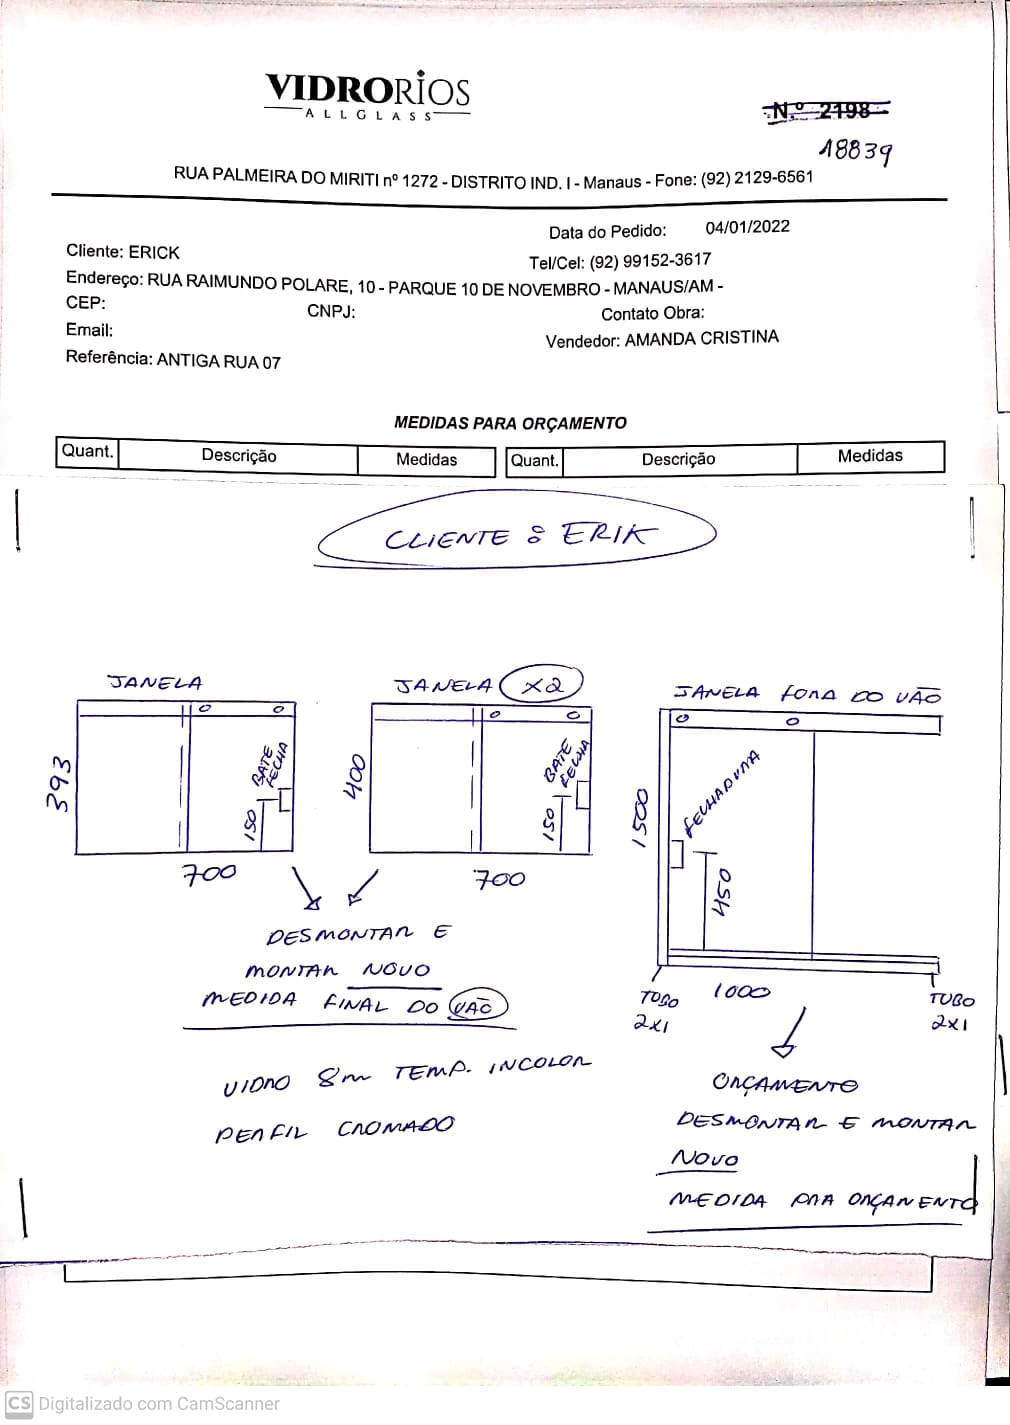 VIDRORIOS
ALLGLASS
N.º 2198
18839
RUA PALMEIRA DO MIRITI nº 1272 - DISTRITO IND. I - Manaus - Fone: (92) 2129-6561
Data do Pedido: 04/01/2022
Cliente: ERICK
Tel/Cel: (92) 99152-3617
Endereço: RUA RAIMUNDO POLARE, 10 - PARQUE 10 DE NOVEMBRO - MANAUS/AM -
CEP: CNPJ: Contato Obra:
Email: Vendedor: AMANDA CRISTINA
Referência: ANTIGA RUA 07
MEDIDAS PARA ORÇAMENTO
Quant. Descrição Medidas Quant. Descrição Medidas
CLIENTE : ERIK
JANELA
393
BATE
FECHA
150
700
JANELA X2
400
BATE
FECHA
150
700
DESMONTAR E
MONTAR NOVO
MEDIDA FINAL DO VÃO
VIDRO 8m TEMP. INCOLOR
PERFIL CROMADO
JANELA FORA DO VÃO
1500
FECHADURA
450
TUBO
2x1
1000
TUBO
2x1
ORÇAMENTO
DESMONTAR E MONTAR
NOVO
MEDIDA PRA ORÇAMENTO
CS Digitalizado com CamScanner